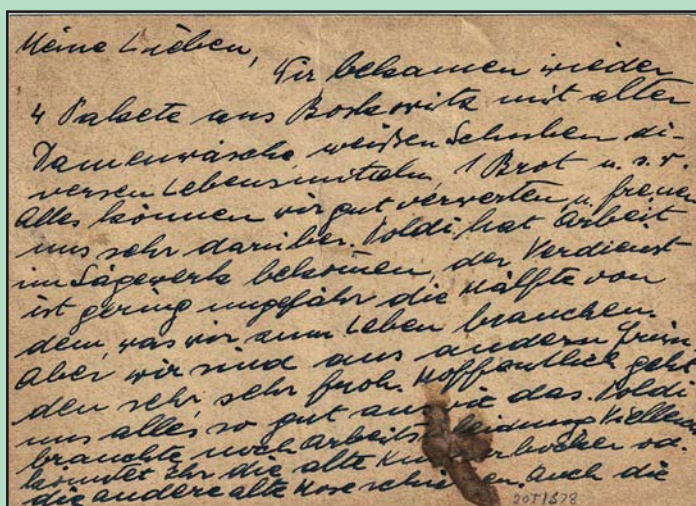 Meine Lieben,
Wir bekamen wieder
4 Pakete aus Boskowitz mit alter
Damenwäsche, weißen Schuhen di-
versen Lebensmitteln, 1 Brot u. s. w.
Alles können wir gut verwerten u. freuen
uns sehr darüber. Poldi hat Arbeit
im Sägewerk bekommen, der Verdienst
ist gering ungefähr die Hälfte von
dem, was wir zum Leben brauchen.
Aber wir sind aus andern Grün-
den sehr sehr froh. Hoffentlich geht
uns alles so gut aus wie das. Poldi
brauchte noch Arbeits leidung
könntet Ihr die alte erbocker od.
die andere alte Hose schi en. Auch die
205/578